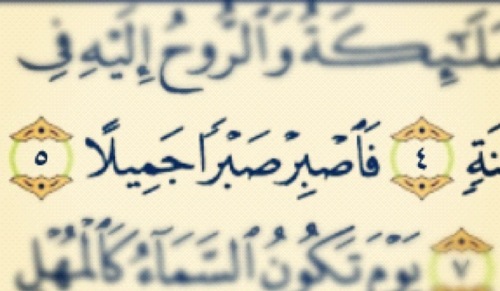 لَٰٓئِكَةُ وَٱلرُّوحُ إِلَيْهِ فِى
نَةٍ ٤ فَٱصْبِرْ صَبْرًا جَمِيلًا ٥
٧ يَوْمَ تَكُونُ ٱلسَّمَآءُ كَٱلْمُهْلِ